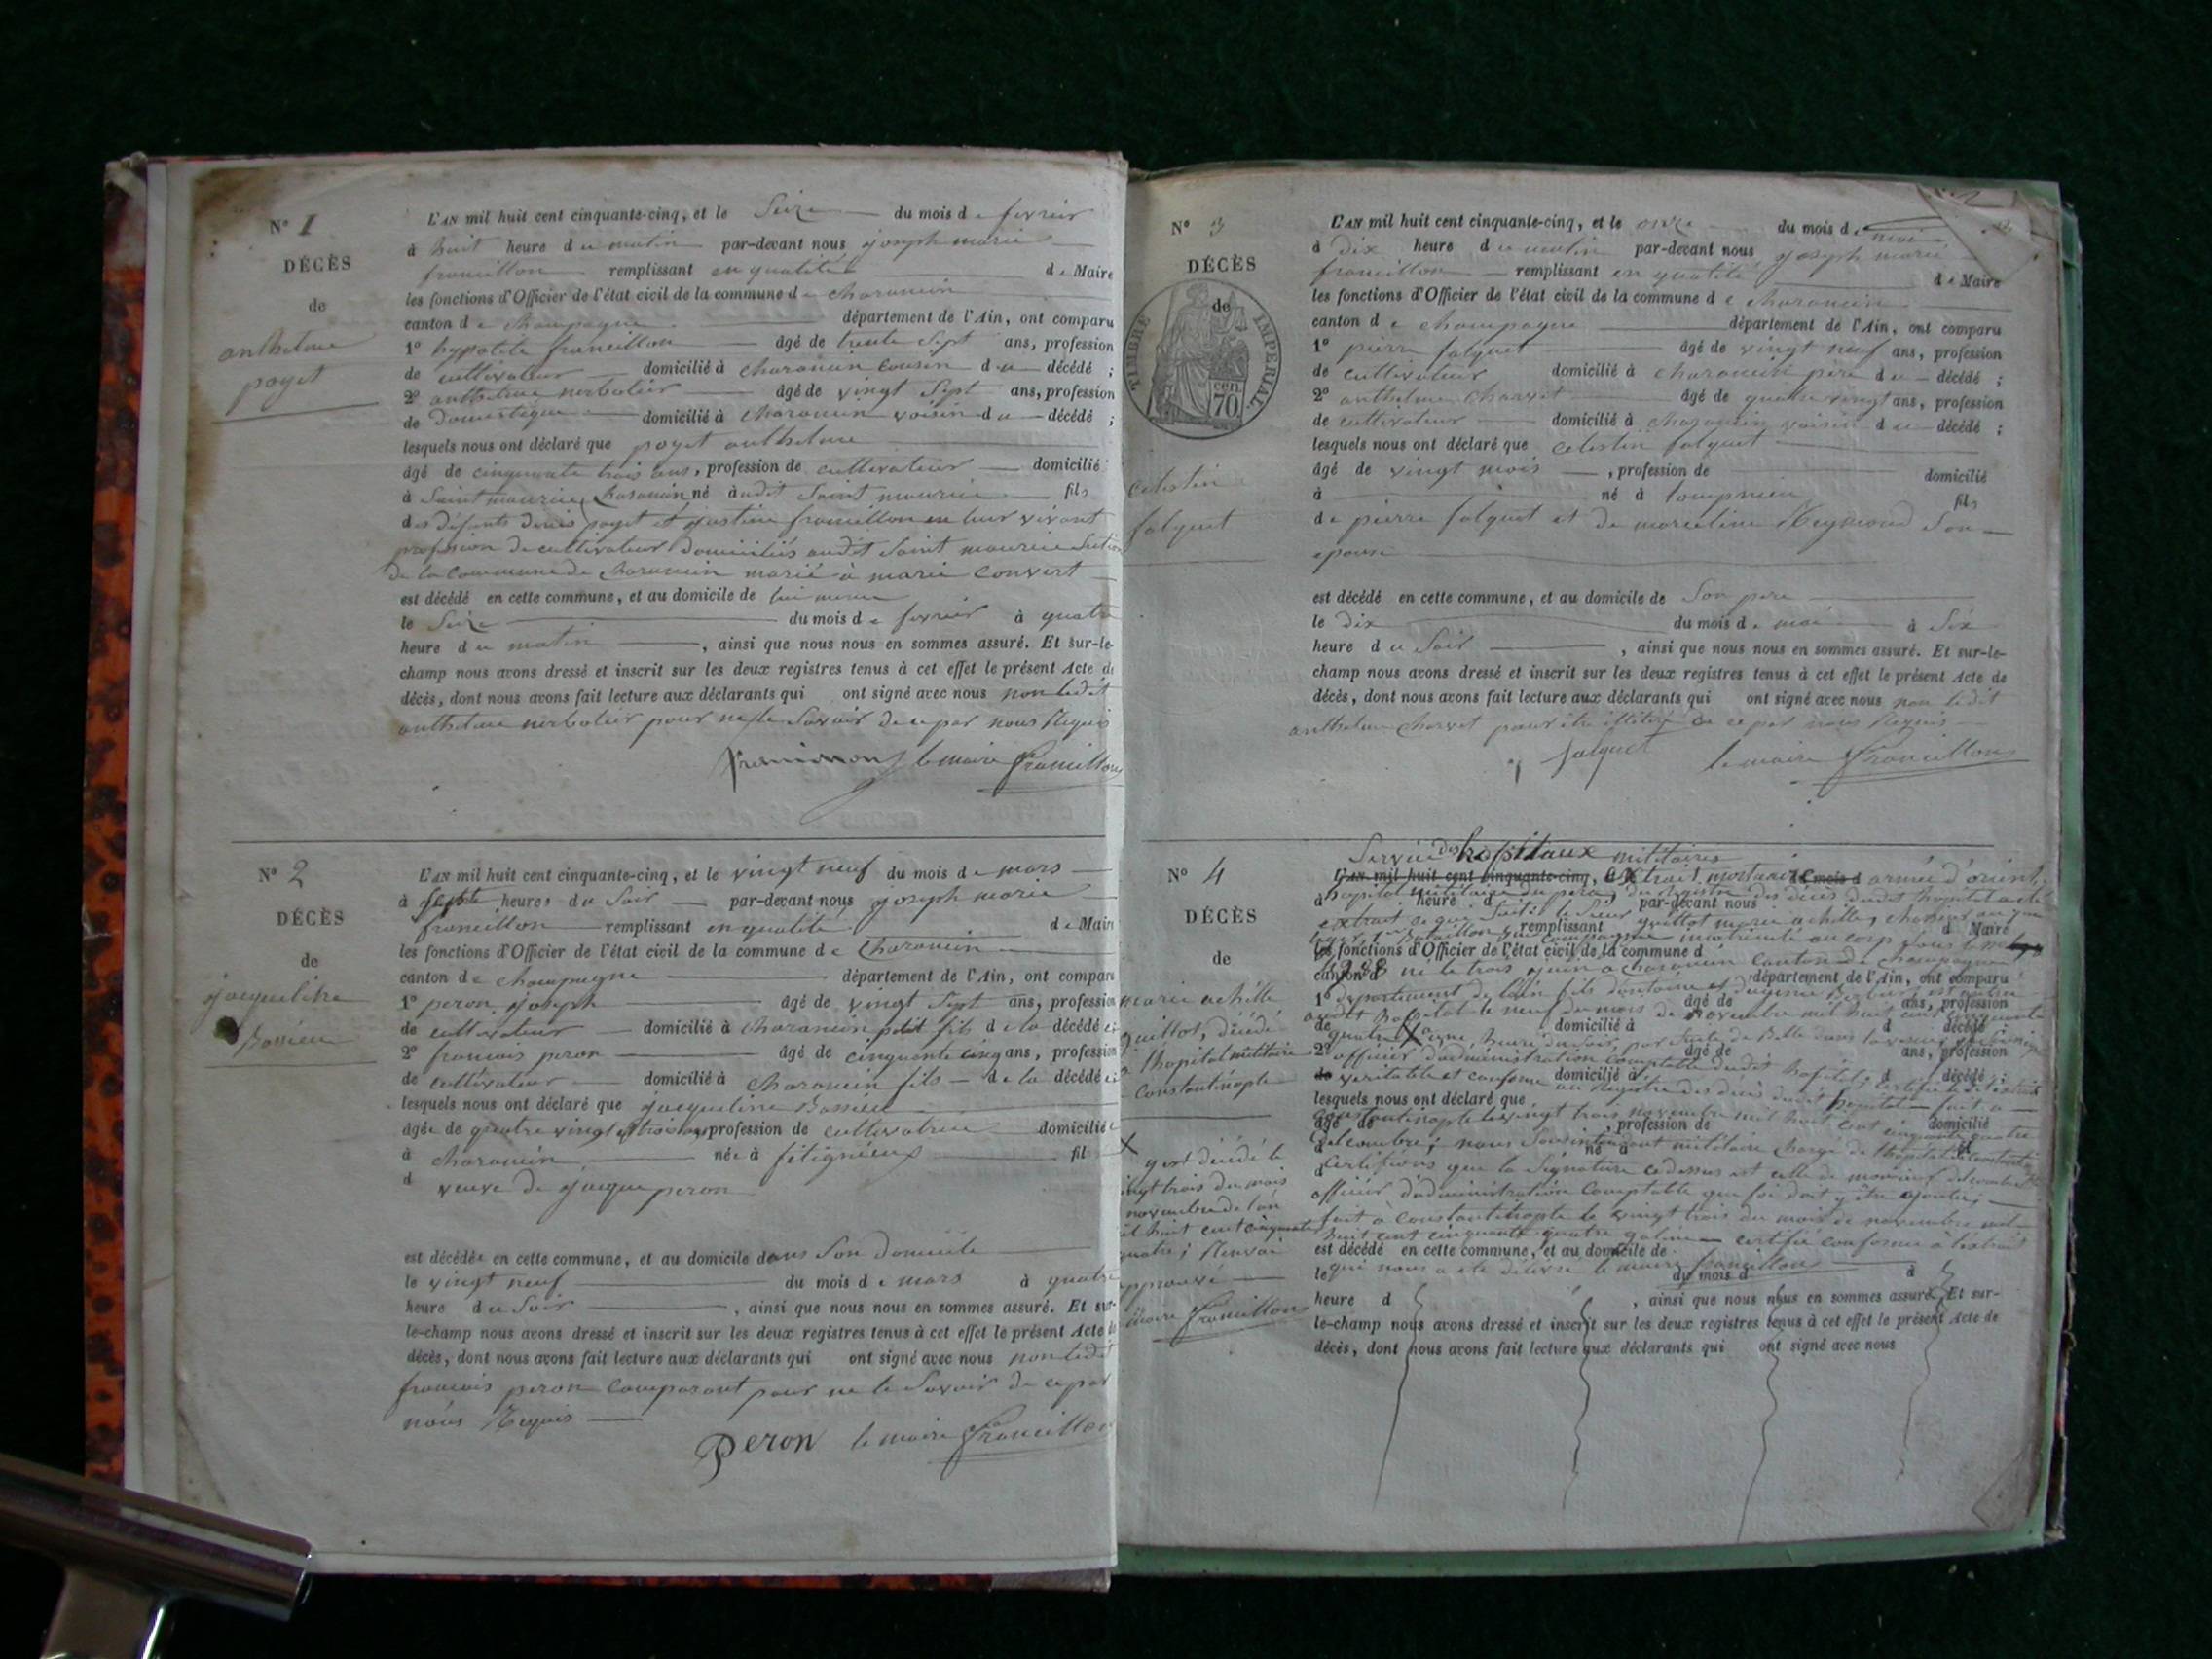 N° 1
DÉCÈS
de
anthelme
poyet
L'AN mil huit cent cinquante-cinq, et le Seize du mois de fevrier
à huit heure du matin par-devant nous joseph marie
francillon remplissant en qualité de Maire
les fonctions d'Officier de l'état civil de la commune de charancin
canton de champagne département de l'Ain, ont comparu
1° hypolite francillon âgé de trente Sept ans, profession
de cultivateur domicilié à charancin cousin du décédé ;
2° anthelme âgé de vingt Sept ans, profession
de Domestique domicilié à charancin voisin du décédé ;
lesquels nous ont déclaré que poyet anthelme
âgé de cinquante trois ans, profession de cultivateur domicilié
à Saint maurice charancin né audit Saint maurice fils
des défunts denis poyet et justine francillon en leur vivant
profession de cultivateur domiciliés audit Saint maurice Section
de la Commune de charancin marié à marie convert
est décédé en cette commune, et au domicile de lui meme
le Seize du mois de fevrier à quatre
heure du matin, ainsi que nous nous en sommes assuré. Et sur-le-
champ nous avons dressé et inscrit sur les deux registres tenus à cet effet le présent Acte de
décès, dont nous avons fait lecture aux déclarants qui ont signé avec nous non ledit
anthelme pour ne le Savoir de ce par nous Requis
francillon le maire francillon
N° 2
DÉCÈS
de
jacqueline
Bossieu
L'AN mil huit cent cinquante-cinq, et le vingt neuf du mois de mars
à Sept heures du Soir par-devant nous joseph marie
francillon remplissant en qualité de Maire
les fonctions d'Officier de l'état civil de la commune de Charancin
canton de champagne département de l'Ain, ont comparu
1° peron joseph âgé de vingt Sept ans, profession
de cultivateur domicilié à charancin petit fils de la décédée ;
2° francois peron âgé de cinquante cinq ans, profession
de cultivateur domicilié à charancin fils de la décédée ;
lesquels nous ont déclaré que jacqueline Bossieu
âgée de quatre vingt trois ans, profession de cultivatrice domiciliée
à charancin née à fitignieux fil
d veuve de jacque peron
est décédée en cette commune, et au domicile dans Son domicile
le vingt neuf du mois de mars à quatre
heure du Soir, ainsi que nous nous en sommes assuré. Et sur-
le-champ nous avons dressé et inscrit sur les deux registres tenus à cet effet le présent Acte de
décès, dont nous avons fait lecture aux déclarants qui ont signé avec nous non ledit
francois peron comparant pour ne le Savoir de ce par
nous Requis
Peron le maire francillon
N° 3
DÉCÈS
de
TIMBRE IMPERIAL
70 cen
celestin
falquet
L'AN mil huit cent cinquante-cinq, et le onze du mois de mai
à Dix heure du matin par-devant nous joseph marie
francillon remplissant en qualité de Maire
les fonctions d'Officier de l'état civil de la commune de charancin
canton de champagne département de l'Ain, ont comparu
1° pierre falquet âgé de vingt neuf ans, profession
de cultivateur domicilié à charancin père du décédé ;
2° anthelme Charvet âgé de quatre vingt ans, profession
de cultivateur domicilié à charancin voisin du décédé ;
lesquels nous ont déclaré que celestin falquet
âgé de vingt mois, profession de domicilié
à né à Lompnieu fils
de pierre falquet et de marceline Reymond Son
epouse
est décédé en cette commune, et au domicile de Son pere
le dix du mois de mai à Six
heure du Soir, ainsi que nous nous en sommes assuré. Et sur-le-
champ nous avons dressé et inscrit sur les deux registres tenus à cet effet le présent Acte de
décès, dont nous avons fait lecture aux déclarants qui ont signé avec nous non ledit
anthelme Charvet pour être illitéré de ce par nous Requis
falquet le maire francillon
N° 4
DÉCÈS
de
marie achille
guillot, décédé
a l'hopital militaire
Constantinople
X
y est décédé le
vingt trois du mois
novembre de l'an
mil huit cent cinquante
quatre ; Renvoi
approuvé
maire francillon
Service des hopitaux militaires
L'AN mil huit cent cinquante-cinq, Extrait mortuaire du mois d armée d'orient
hopital militaire du pera, du Registre des décès dudit hopital
à heure d par-devant nous
extrait ce que Suit : le Sieur guillot marie achille, chasseur
remplissant d Maire
les fonctions d'Officier de l'état civil de la commune d
né le trois juin a charancin canton de champagne
canton d département de l'Ain, ont comparu
departement de l'ain fils
1° âgé de ans, profession
audit hopital le neuf du mois de novembre mil huit cent cinquante
de domicilié à d décédé ;
quatre
2° âgé de ans, profession
officier d'administration comptable dudit hopital, certifie
de domicilié à d décédé ;
veritable et conforme au Registre des décès dudit hopital fait a
lesquels nous ont déclaré que
Constantinople le vingt trois novembre mil huit cent cinquante quatre
âgé de, profession de domicilié
delcombre ; nous Sous intendant militaire chargé de l'hopital de constantinople
à né à fil
certifions que la Signature cidessus est celle de monsieur delcombre
officier d'administration comptable que foi doit y être ajoutée,
fait à Constantinople le vingt trois du mois de novembre mil
huit cent cinquante quatre certifié conforme à l'extrait
est décédé en cette commune, et au domicile de
qui nous a été délivré le maire francillon
le du mois d à
heure d, ainsi que nous nous en sommes assuré. Et sur-
le-champ nous avons dressé et inscrit sur les deux registres tenus à cet effet le présent Acte de
décès, dont nous avons fait lecture aux déclarants qui ont signé avec nous